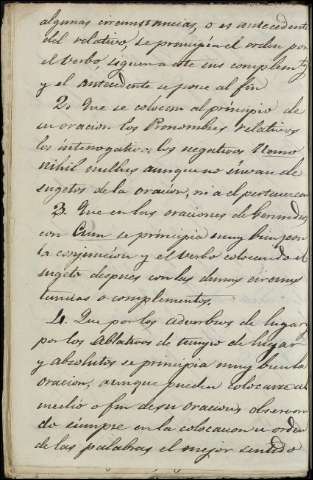 algunas circunstancias, o es antecedente
del relativo, se principia el orden por
el verbo, siguen a este sus complemtos
y el antecedente se pone al fin
2. Que se colocan al principio de
la oracion los Pronombres relativos
los interrogativos, los negativos Nemo
nihil nullus aunque no sirvan de
sugetos de la oracion, ni a el pertenezcan
3. Que en las oraciones de Gerundio
con Cum se principia muy bien por
la conjuncion y el verbo colocando el
sugeto despues con las demas circuns
tancias o complementos.
4. Que por los adverbios de lugar
por los Ablativos de tiempo de lugar
y absolutos se principia muy bien la
oracion, aunque pueden colocarse al
medio o fin de su oracion, observan
do siempre en la colocacion u orden
de las palabras el mejor sentido